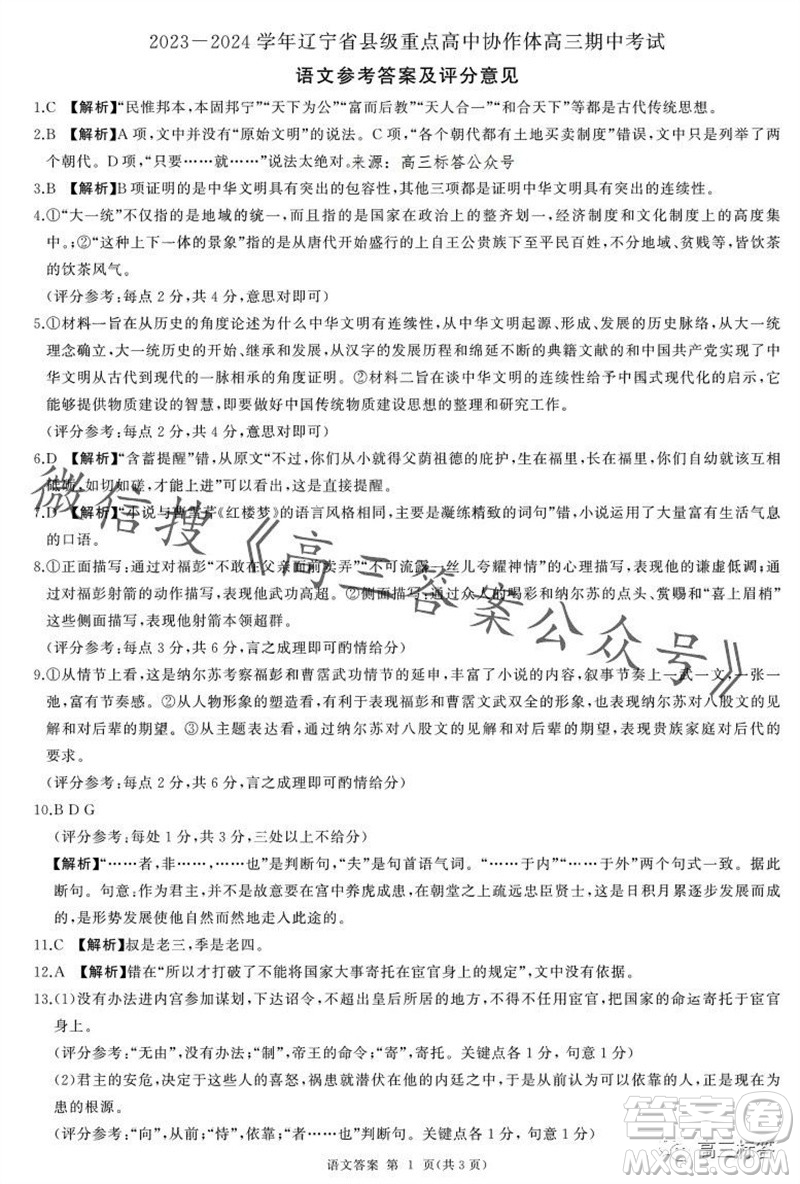 2023－2024 学年辽宁省县级重点高中协作体高三期中考试
语文参考答案及评分意见
1.C 【解析】“民惟邦本，本固邦宁”“天下为公”“富而后教”“天人合一”“和合天下”等都是古代传统思想。
2.B 【解析】A 项，文中并没有“原始文明”的说法。C 项，“历朝历代都有土地买卖制度”错误，文中只是列举了两
个朝代。D 项，“只要……就……”说法太绝对。来源：高三标答公众号
3.B 【解析】B 项证明的是中华文明具有突出的包容性，其他三项都是证明中华文明具有突出的连续性。
4.①“大一统”不仅指的是地域的统一，而且指的是国家在政治上的整齐划一，经济制度和文化制度上的高度集
中。；②“这种上下一体的景象”指的是从唐代开始盛行的上自王公贵族下至平民百姓，不知贫贱，皆要饮茶
的饮茶风气。
(评分参考：每点 2 分，共 4 分，意思对即可)
5.①材料一旨在从历史的角度论述为什么中华文明有连续性，从中华文明起源、形成、发展的历史脉络，从大一统
理念确立、大一统历史的开始、继承和发展，从汉字的发展演变、绵延不断的典籍文献的和中国共产党实现了中
华文明从古代到现代的一脉相承的角度证明。②材料二旨在谈中华文明的连续性给予中国式现代化的启示，它
们能提供物质建设的智慧，即要做好中国传统物质建设思想的整理和研究工作。
(评分参考：每点 2 分，共 4 分，意思对即可)
6.D 【解析】“含蓄提醒”错，从原文“不过，你们从小就承father父荫祖德的庇护，生长在福里，我只盼望你们在福里互相
砥砺，如切如磋，不可懈怠”看，这是直接提醒。
7.D 【解析】“小说与曹雪芹《红楼梦》的语言风格相同，表现在主要是凝练精美的词句”错，小说运用了大量富有生活气息
的口语。
8.①正面描写：通过对福彭“不敢在父亲面前卖弄”“不可流露一丝儿夸耀神情”的心理描写，表现他的谦虚低调；通
过对福彭射箭的动作描写，表现他武功高超。②侧面描写，通过众人的喝彩和纳尔苏的点头、赏赐和“喜上眉梢”
这些侧面描写，表现他射箭本领超群。
(评分参考：每点 3 分，共 6 分，言之成理即可酌情给分)
9.①从情节上看，这是纳尔苏考察福彭和曹霑武功情节的延申，丰富了小说的内容，叙事节奏上一武一文，一张一
弛，富有节奏感。②从人物形象的塑造看，有利于表现福彭和曹霑文武双全的形象，也表现纳尔苏对八股文的见
解和对后辈的期望。③从主题表达看，通过纳尔苏对八股文的见解和对后辈的期望，表现贵族家庭对后代的
要求。
(评分参考：每点 2 分，共 6 分，言之成理即可酌情给分)
10.B D G
(评分参考：每处 1 分，共 3 分，三处以上不给分)
【解析】“……者，非……，……也”是判断句，“夫”是句首语气词。“……于内”“……于外”两个句式一致。据此
断句。句意：作为君主，并不是喜欢在宫中养虎成患，在朝堂之上疏远忠臣贤士，这是日积月累逐渐发展而成
的，是形势发展使他们自然而然地进入此途的。
11.C 【解析】叔是老三，季是老四。
12.A 【解析】在“所以才打破了不能将国家大事寄托在宦官身上的规定”，文中无此因果关系。
13.(1)没有办法进内宫参加谋划，下达诏令，不得不出入后妃居所的地方，不得不将国家重任，寄托在刑余宦官
身上。
(评分参考：“无由”，没有办法；“制”，帝王的命令；“寄”，寄托。关键点各 1 分，句意 1 分)
(2)君主的安危，决定于这些人的喜怒，祸患就潜伏在他的内廷之中，以前认为可以依靠的人，现在却成为为
患的根源。
(评分参考：“向”，从前；“恃”，依靠；“所以”，……的根源。关键点各 1 分，句意 1 分)
语文答案 第 1 页(共 3 页)
微信搜《高三答案公众号》
答案圈
高三标答